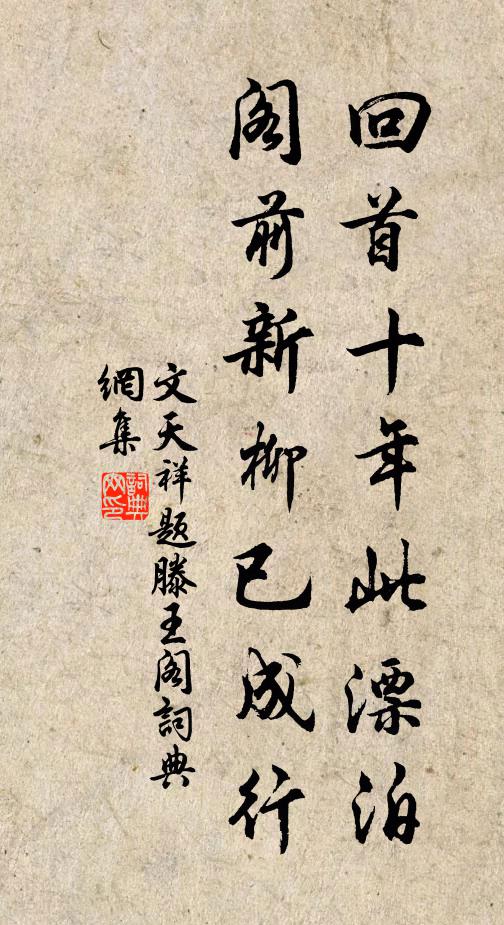 回首十年此漂泊
阁前新柳已成行
文天祥题滕王阁詞典
網集
詞典
网印